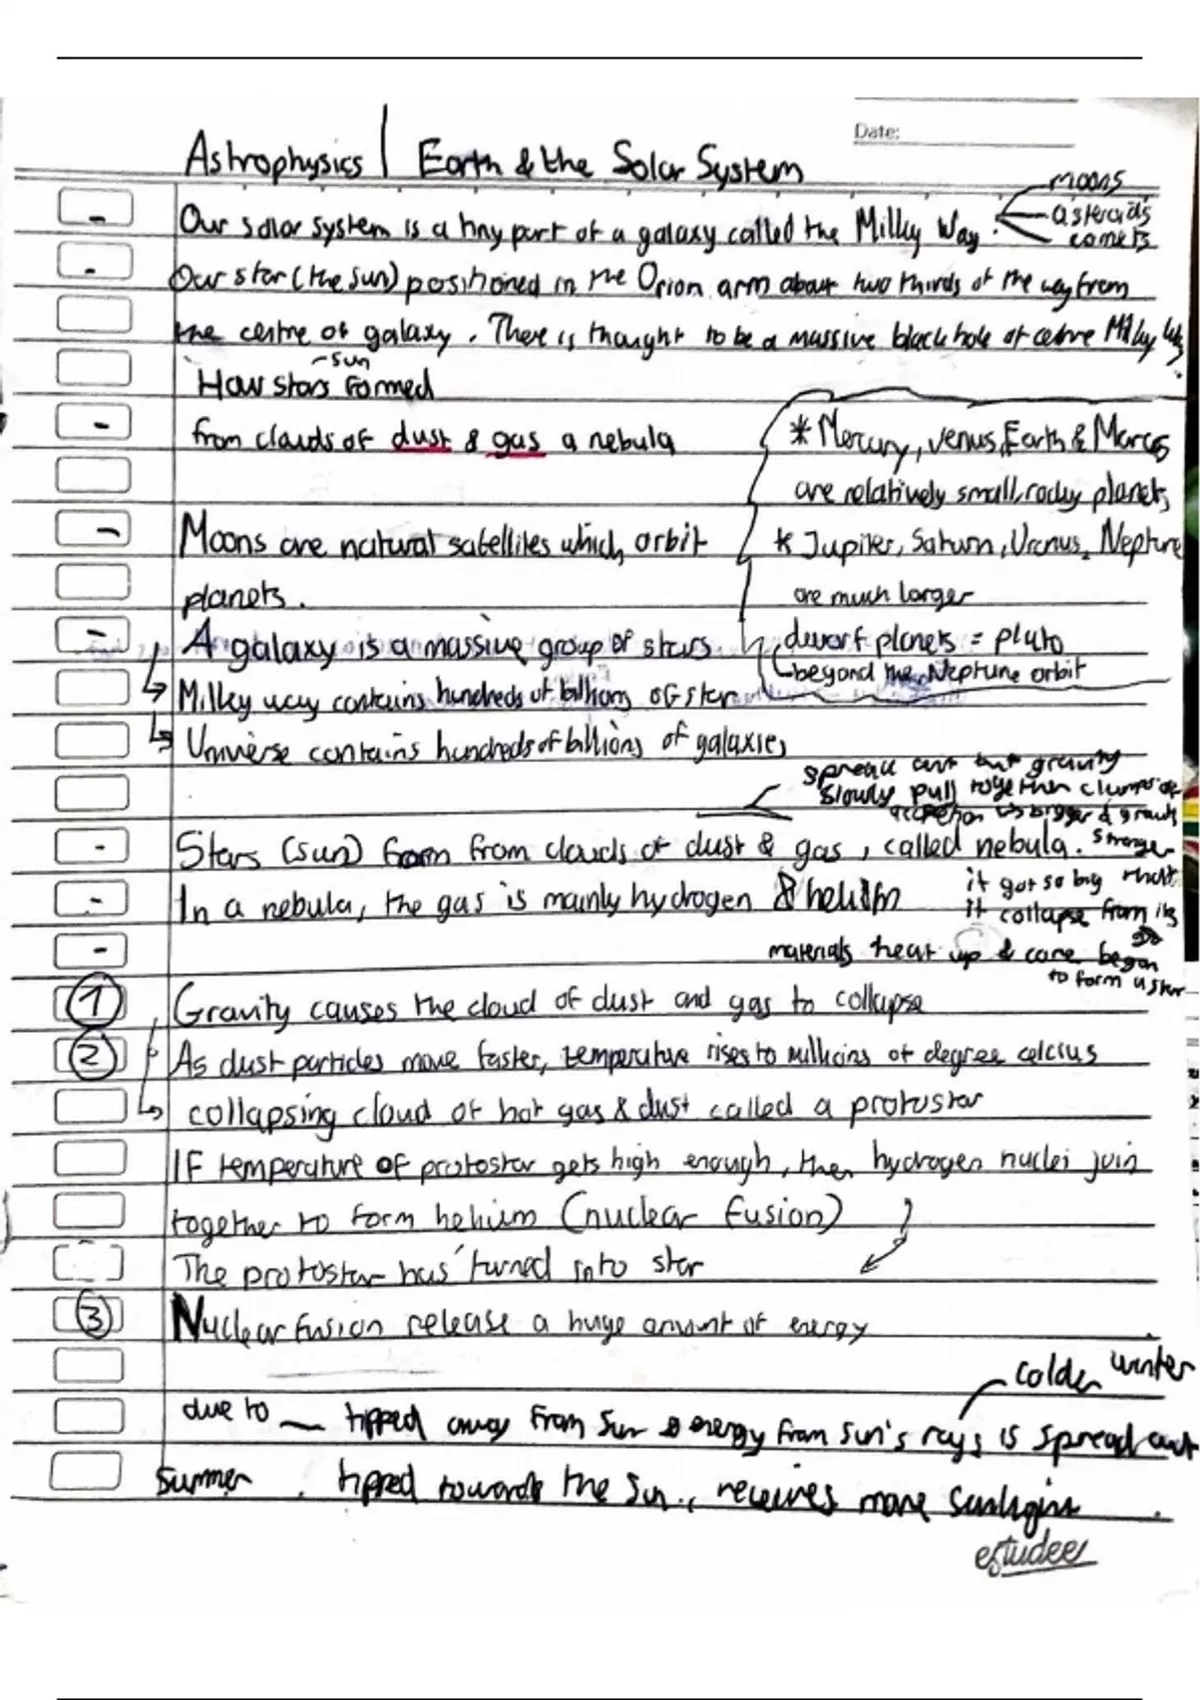 Date:
Astrophysics | Earth & the Solar System
moons
asteroids
comets
- Our solar system is a tiny part of a galaxy called the Milky Way.
- Our star (the sun) positioned in the Orion arm about two thirds of the way from
the centre of galaxy. There is thought to be a massive black hole at centre Milky Way.
sun
How stars formed
- from clouds of dust & gas a nebula
* Mercury, Venus, Earth & Marcs
are relatively small, rocky planets
* Jupiter, Saturn, Uranus, Neptune
are much larger
dwarf planets = pluto
beyond the Neptune orbit
- Moons are natural satellites which orbit
planets.
- A galaxy is a massive group of stars
Milky way contains hundreds of billions of star
Universe contains hundreds of billions of galaxies
spread out but gravity
slowly pull together clumps of
accretion bigger & gravity
stronger
- Stars (sun) form from clouds of dust & gas, called nebula.
- In a nebula, the gas is mainly hydrogen & helium
it got so big that
it collapse from its
-
materials heat up & core began
to form a star
① Gravity causes the cloud of dust and gas to collapse
② As dust particles move faster, temperature rises to millions of degree celcius
collapsing cloud of hot gas & dust called a protostar
IF temperature of protostar gets high enough, then hydrogen nuclei join
together to form helium (nuclear fusion)
The protostar has turned into star
③ Nuclear fusion release a huge amount of energy
colder winter
due to tipped away from Sun & energy from sun's rays is spread out
Summer tipped towards the Sun, receives more sunlight.
estudee